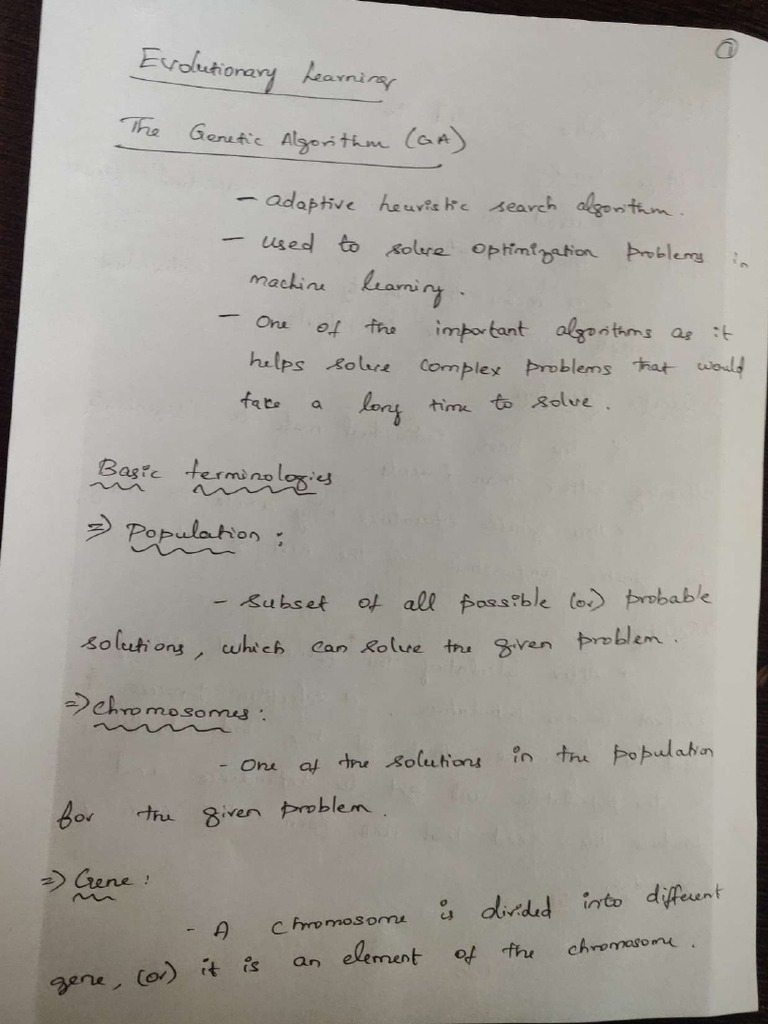 1
Evolutionary Learning
The Genetic Algorithm (GA)
- adaptive heuristic search algorithm.
- used to solve optimization problems in
machine learning.
- One of the important algorithms as it
helps solve complex problems that would
take a long time to solve.
Basic terminologies
=> Population :
- Subset of all possible (or) probable
solutions, which can solve the given problem.
=> Chromosomes :
- One of the solutions in the population
for the given problem.
=> Gene :
- A chromosome is divided into different
gene, (or) it is an element of the chromosome.